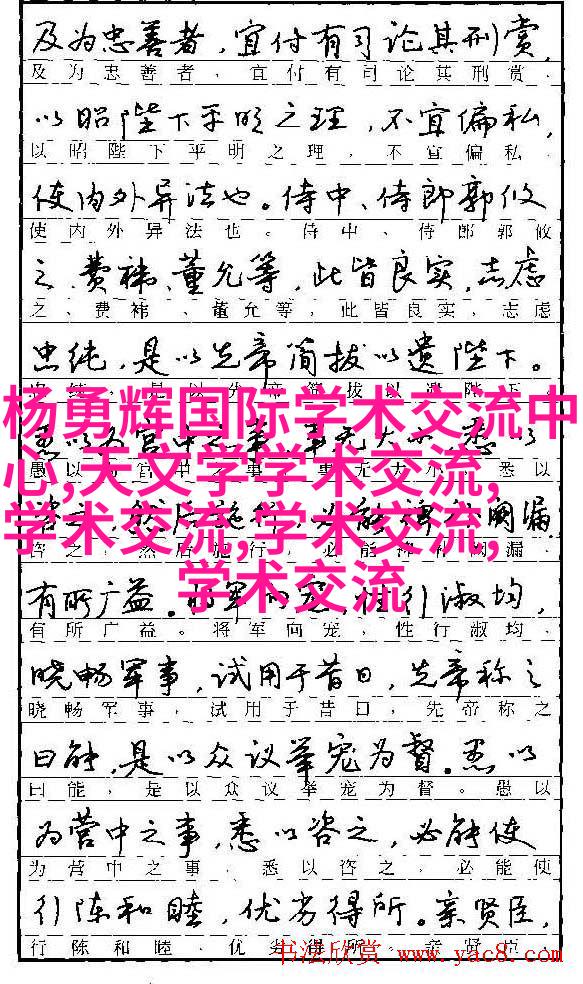 及为忠善者，宜付有司论其刑赏，
及为忠善者，宜付有司论其刑赏，
以昭陛下平明之理，不宜偏私，
以昭陛下平明之理，不宜偏私，
使内外异法也。侍中、侍郎郭攸
使内外异法也。侍中、侍郎郭攸
之、费祎、董允等，此皆良实，志虑
之、费祎、董允等，此皆良实，志虑
忠纯，是以先帝简拔以遗陛下。
杨勇辉国际学术交流中
心,天文学学术交流,
学术交流,学术交流,
学术交流
事无大小，悉以
愚以为宫中之事，事无大小，悉以
然后施行，必能裨补阙漏，
咨之，然后施行，必能裨补阙漏，
有所广益。将军向宠，性行淑均，
有所广益。将军向宠，性行淑均，
晓畅军事，试用于昔日，先帝称之
晓畅军事，试用于昔日，先帝称之
曰能，是以众议举宠为督。愚以
曰能，是以众议举宠为督。愚以
为营中之事，悉以咨之，必能使
为营中之事，悉以咨之，必能使
行陈和睦，优劣得所。亲贤臣，
行陈和睦，优劣得所。亲贤臣，
书法欣赏 www.yac8.com